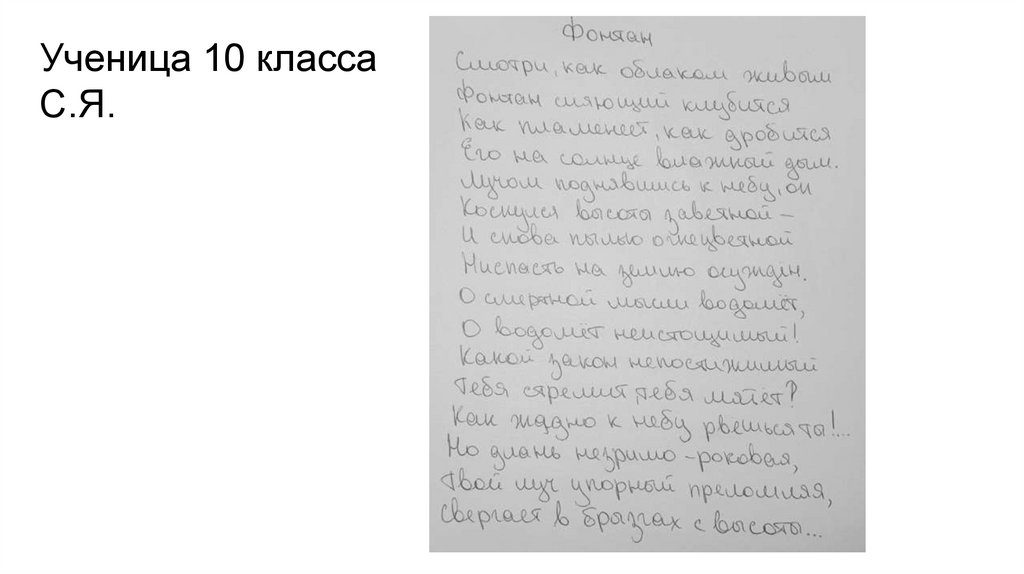 Ученица 10 класса
С.Я.
Фонтан
Смотри, как облаком живым
Фонтан сияющий клубится
Как пламенеет, как дробится
Его на солнце влажный дым.
Лучом поднявшись к небу, он
Коснулся высоты заветной –
И снова пылью огнецветной
Ниспасть на землю осуждён.
О смертной мысли водомёт,
О водомёт неистощимый!
Какой закон непостижимый
Тебя стремит, тебя мятёт?
Как жадно к небу рвешься ты!...
Но длань незримо-роковая,
Твой луч упорный преломляя,
Свергает в брызгах с высоты...